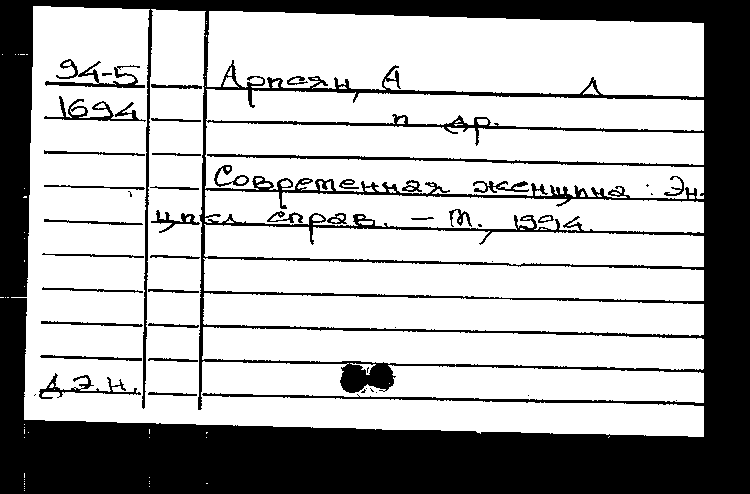 94-5 Арпсян, А Л
1694 и др.
Современная женщина : Эн-
цикл справ. – М., 1994.
Д Э.Н.